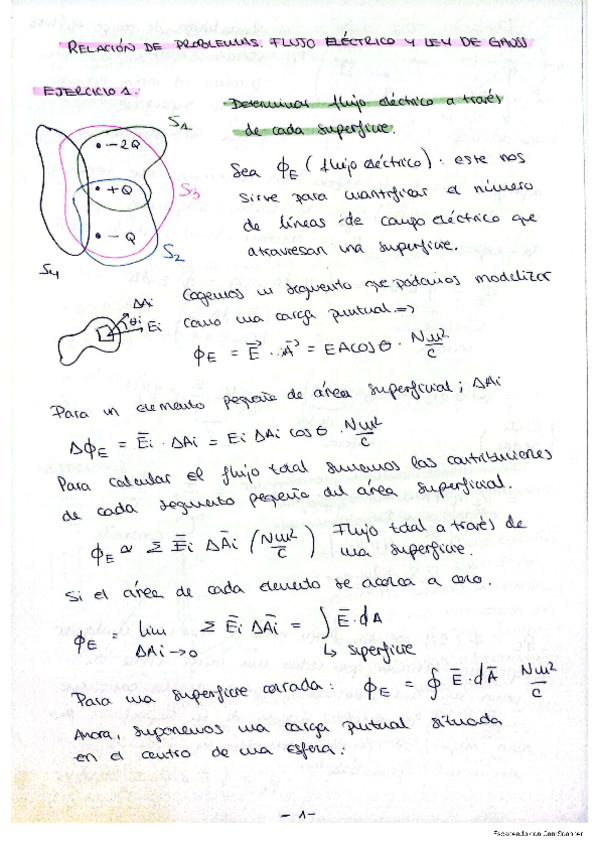 RELACIÓN DE PROBLEMAS. FLUJO ELÉCTRICO Y LEY DE GAUSS
EJERCICIO 1.
Determinar flujo eléctrico a través
de cada superficie.
S1
-2Q
+Q
S3
-Q
S2
S4
Sea ϕE (flujo eléctrico): este nos
sirve para cuantificar el número
de líneas de campo eléctrico que
atraviesan una superficie.
ΔAi
θi
Ei
Cogemos un segmento que podamos modelizar
como una carga puntual =>
ϕE = E⃗ · A⃗ = EA cos θ · Nm²/C
Para un elemento pequeño de área superficial; ΔAi
ΔϕE = Ēi · ΔAi = Ei ΔAi cos θ · Nm²/C
Para calcular el flujo total sumamos las contribuciones
de cada segmento pequeño del área superficial.
ϕE ≈ Σ Ēi ΔĀi (Nm²/C) Flujo total a través de
una superficie.
Si el área de cada elemento se acerca a cero.
ϕE = lim ΔAi→0 Σ Ēi ΔĀi = ∫ Ē · dA
↳ superficie
Para una superficie cerrada: ϕE = ∮ Ē · dĀ Nm²/C
Ahora, suponemos una carga puntual situada
en el centro de una esfera:
-1-
Escaneado con CamScanner